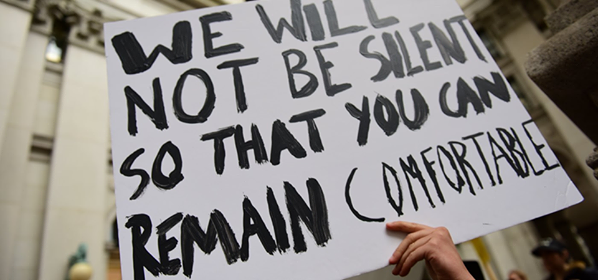 WE WILL
NOT BE SILENT
SO THAT YOU CAN
REMAIN COMFORTABLE